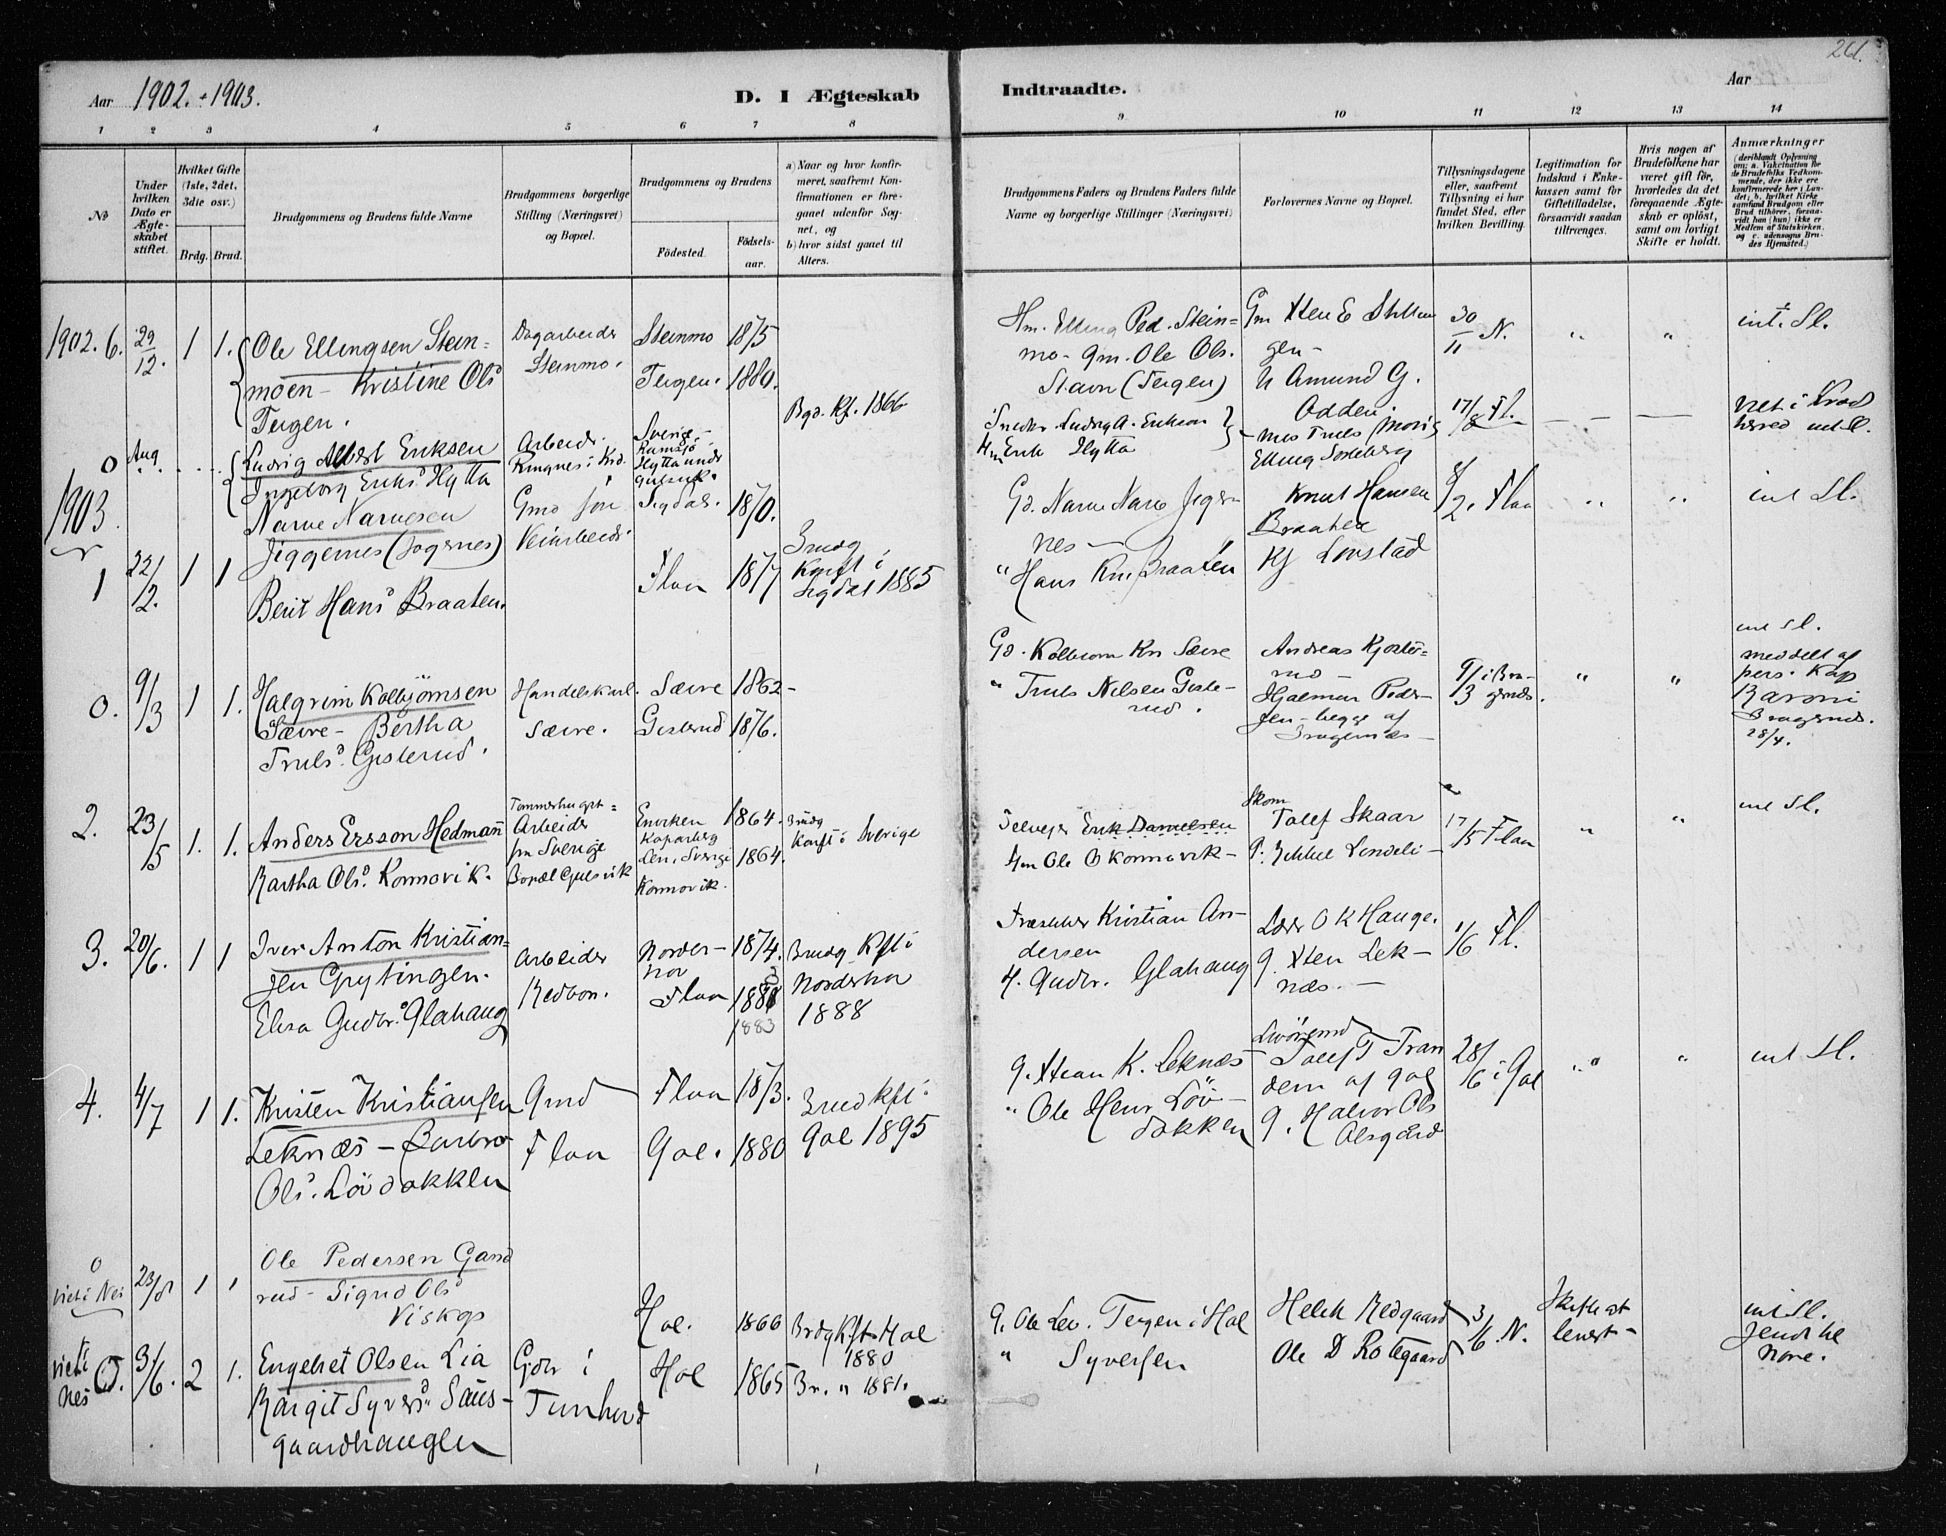 261.
Aar 1902. - 1903.
D. I Ægteskab Indtraadte.
Aar
1 2 3 4 5 6 7 8 9 10 11 12 13 14
No
Under hvilken Dato er Ægteskabet stiftet.
Hvilket Gifte (1ste, 2det, 3die osv.)
Brdg. Brud.
Brudgommens og Brudens fulde Navne
Brudgommens borgerlige Stilling (Næringsvei) og Bopæl.
Brudgommens og Brudens
Fødested.
Fødselsaar.
a) Naar og hvor konfirmeret, saafremt Konfirmationen er foregaaet udenfor Sognet, og
b) hvor sidst gaaet til Alters.
Brudgommens Faders og Brudens Faders fulde Navne og borgerlige Stillinger (Næringsvei)
Forlovernes Navne og Bopæl.
Tillysningsdagene eller, saafremt Tillysning ei har fundet Sted, efter hvilken Bevilling.
Legitimation for Indskud i Enkekassen samt for Giftetilladelse, forsaavidt saadan tiltrænges.
Hvis nogen af Brudefolkene har været gift før, hvorledes da det foregaaende Ægteskab er opløst, samt om lovligt Skifte er holdt.
Anmærkninger
(deriblandt Oplysning om: a. Vakcination for de Brudefolks Vedkommende, der ikke ere konfirmerede her i Landet; b. hvilket Kirkesamfund Brudgom eller Brud tilhører, forsaavidt han (hun) ikke er Medlem af Statskirken, og c. udensogns Brudes Hjemsted.)
1902. 6. 29/12. 1 1.
Ole Ellingsen Stein-
moen - Kristine Olsd
Tergen.
Dagarbeider
Steinmo.
Steinmo 1875
Tergen. 1880.
Hm. Elling Ped. Stein-
mo - Gm. Ole Ols.
Stavn (Tergen)
Gm Xten E
gen -
Amund G.
Odden
30/11 N.
" "
int. Sl.
0 Aug
Ludvig Albert Eriksen
Ingeborg Eriksd Hytta
Arbeider
Ringnes i Krd.
Sverig.
Hytta
Bgd. Kf. 1866
Ludvig A. Erikson
Hm Erik Hytta
Truls
Elling
17/8 Fl.
viet i Krød
herred int Sl.
1903.
1 22/2. 1 1
Narve Narvesen
Jiggernes (Jogernes)
Berit Hansd Braaten.
Gmd Søn
Veiarbeider
Sigdal. 1870.
Flaa 1877
Brudg
Konft i
Sigdal 1885
Gd. Narve Narv Jiger-
nes -
" Hans Kn. Braaten
Knut Hansen
Braaten
Kj Lovstad
8/2. Flaa
" "
int Sl.
0. 9/3 1 1.
Halgrim Kolbjörnsen
Sævre - Bertha
Trulsd. Gislerud.
Handelskarl
Sævre.
Sævre 1862 -
Gislerud 1876.
Gd. Kolbiorn Kn Sævre
" Truls Nilsen Gisle-
rud.
Andreas
Hjalmar Peder-
sen - begge af
Bragernæs -
9/3 i Bra-
gernæs.
" "
int Sl.
meddelt af
pers. Kap
Bragernæs.
28/4.
2. 23/5 1. 1.
Anders Ersson Hedmann
Bartha Olsd. Konnovik.
Tømmerhugst=
Arbeider
fra Sverige
Bopæl Gulsvik
Enviken
Koparberg
Len, Sverige
Konnovik.
1864.
1864.
Brudg
Konft i Sverige
Selveier Erik Danielsen
Hm Ole O Konnovik -
Skom
Tolef Skaar
17/5 Flaa
" "
int Sl.
3. 20/6. 1 1
Iver Anton Kristian=
sen Grytingen.
Elisa Gudbr.d Glahaug
Arbeider
Norder-
hov
Flaa
1874.
1883
Brudg Kft i
Norderhov
1888
Kristian An-
dersen
H. Gudbr. Glahaug
Lærer O K Hauge.
G. Xten Lek-
næs. -
1/6 Fl.
4. 4/7 1 1.
Kristen Kristiansen
Leknæs - Barbro
Olsd. Lövdokken
Gmd
Flaa
Flaa 1873.
Gol. 1880
Brud kft i
Gol 1895
G. Xtian K. Leknæs
" Ole Henr Löv-
dokken
Tolef T Tran
dem af Gol
G. Halvor Ols
Alsgård
28/6 i Gol
" "
int Sl.
0
viet i Nes
23/8 1 1
Ole Pedersen Gand
rud - Sigrid Olsd
Viskop
viet i
Nes 0. 3/6. 2 1.
Engebret Olsen Lia
Margit Syversd. Saus-
gaardhaugen
Gdbr i
Tunhovd
Hol. 1866
Hol 1865
Brdg Kft Hol
1880
Br. " 1881.
G. Ole Lev. Tergen i Hol
" Syversen
Helik Medgaard
Ole D Rotegaard
3/6 N.
Skifteat
levert -
int Sl.
Sendt til
Nore.